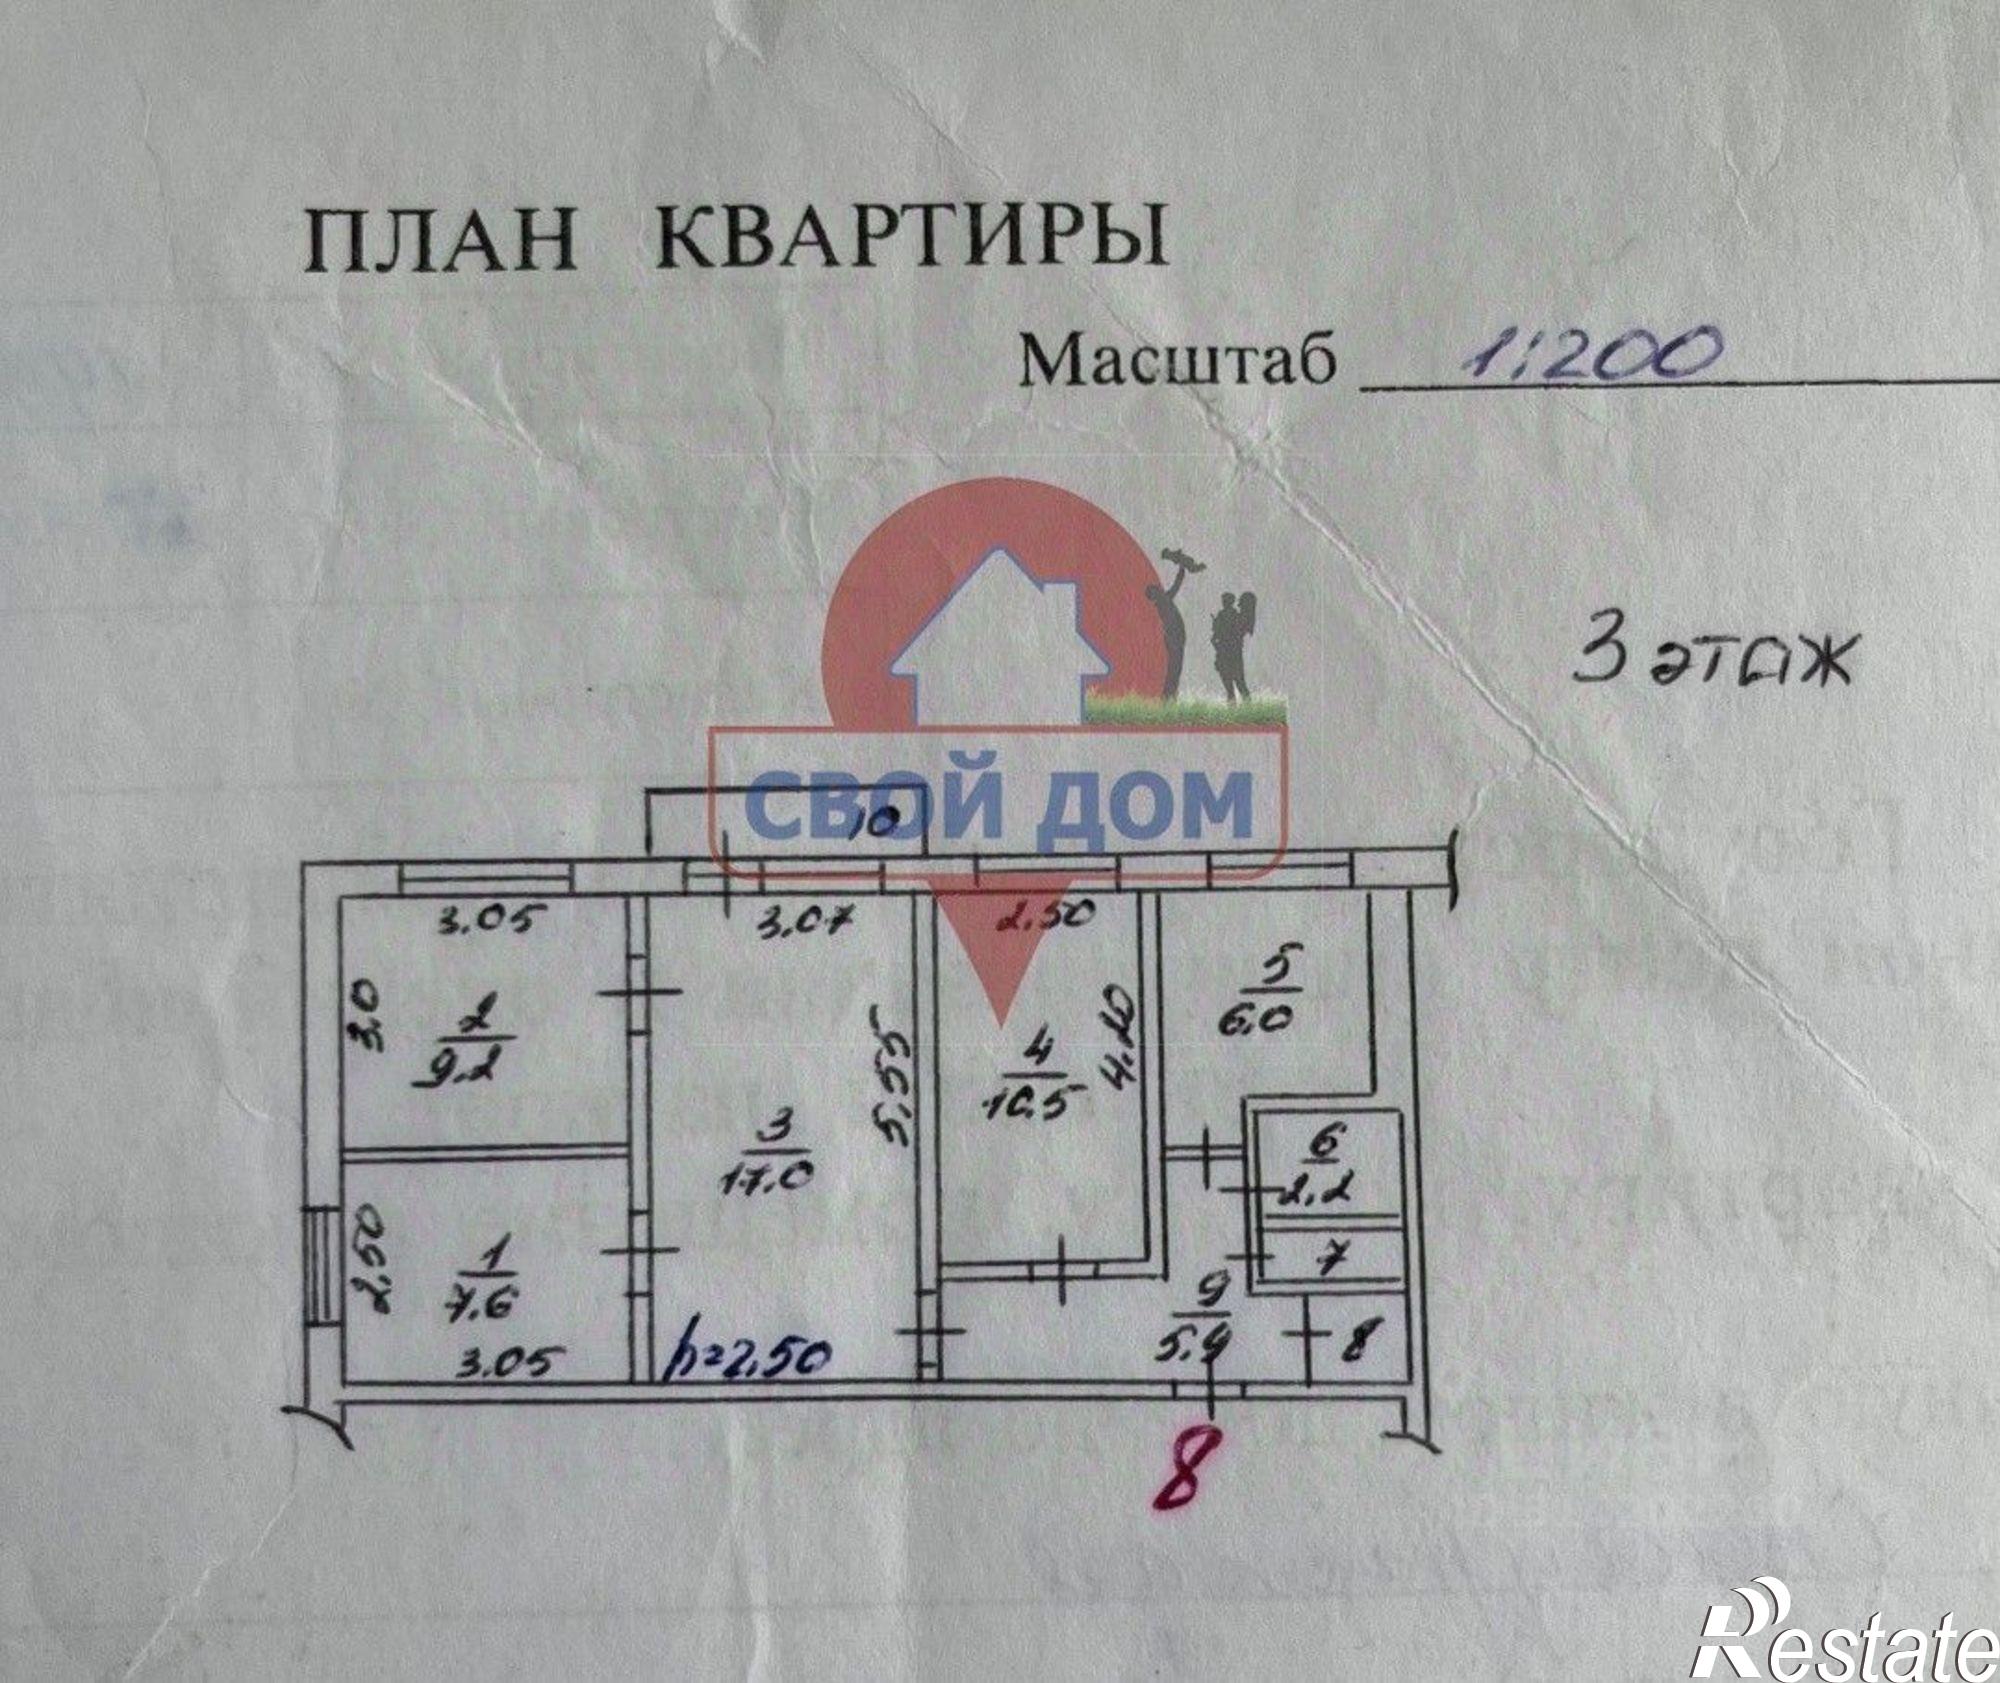 ПЛАН КВАРТИРЫ
Масштаб 1:200
3 этаж
СВОЙ ДОМ
10
3.05
3.07
2.50
5
6.0
3.0
2
9.2
5.55
4
10.5
4.20
3
17.0
6
2.2
2.50
1
7.6
7
9
5.9
8
3.05
h=2.50
8
Restate